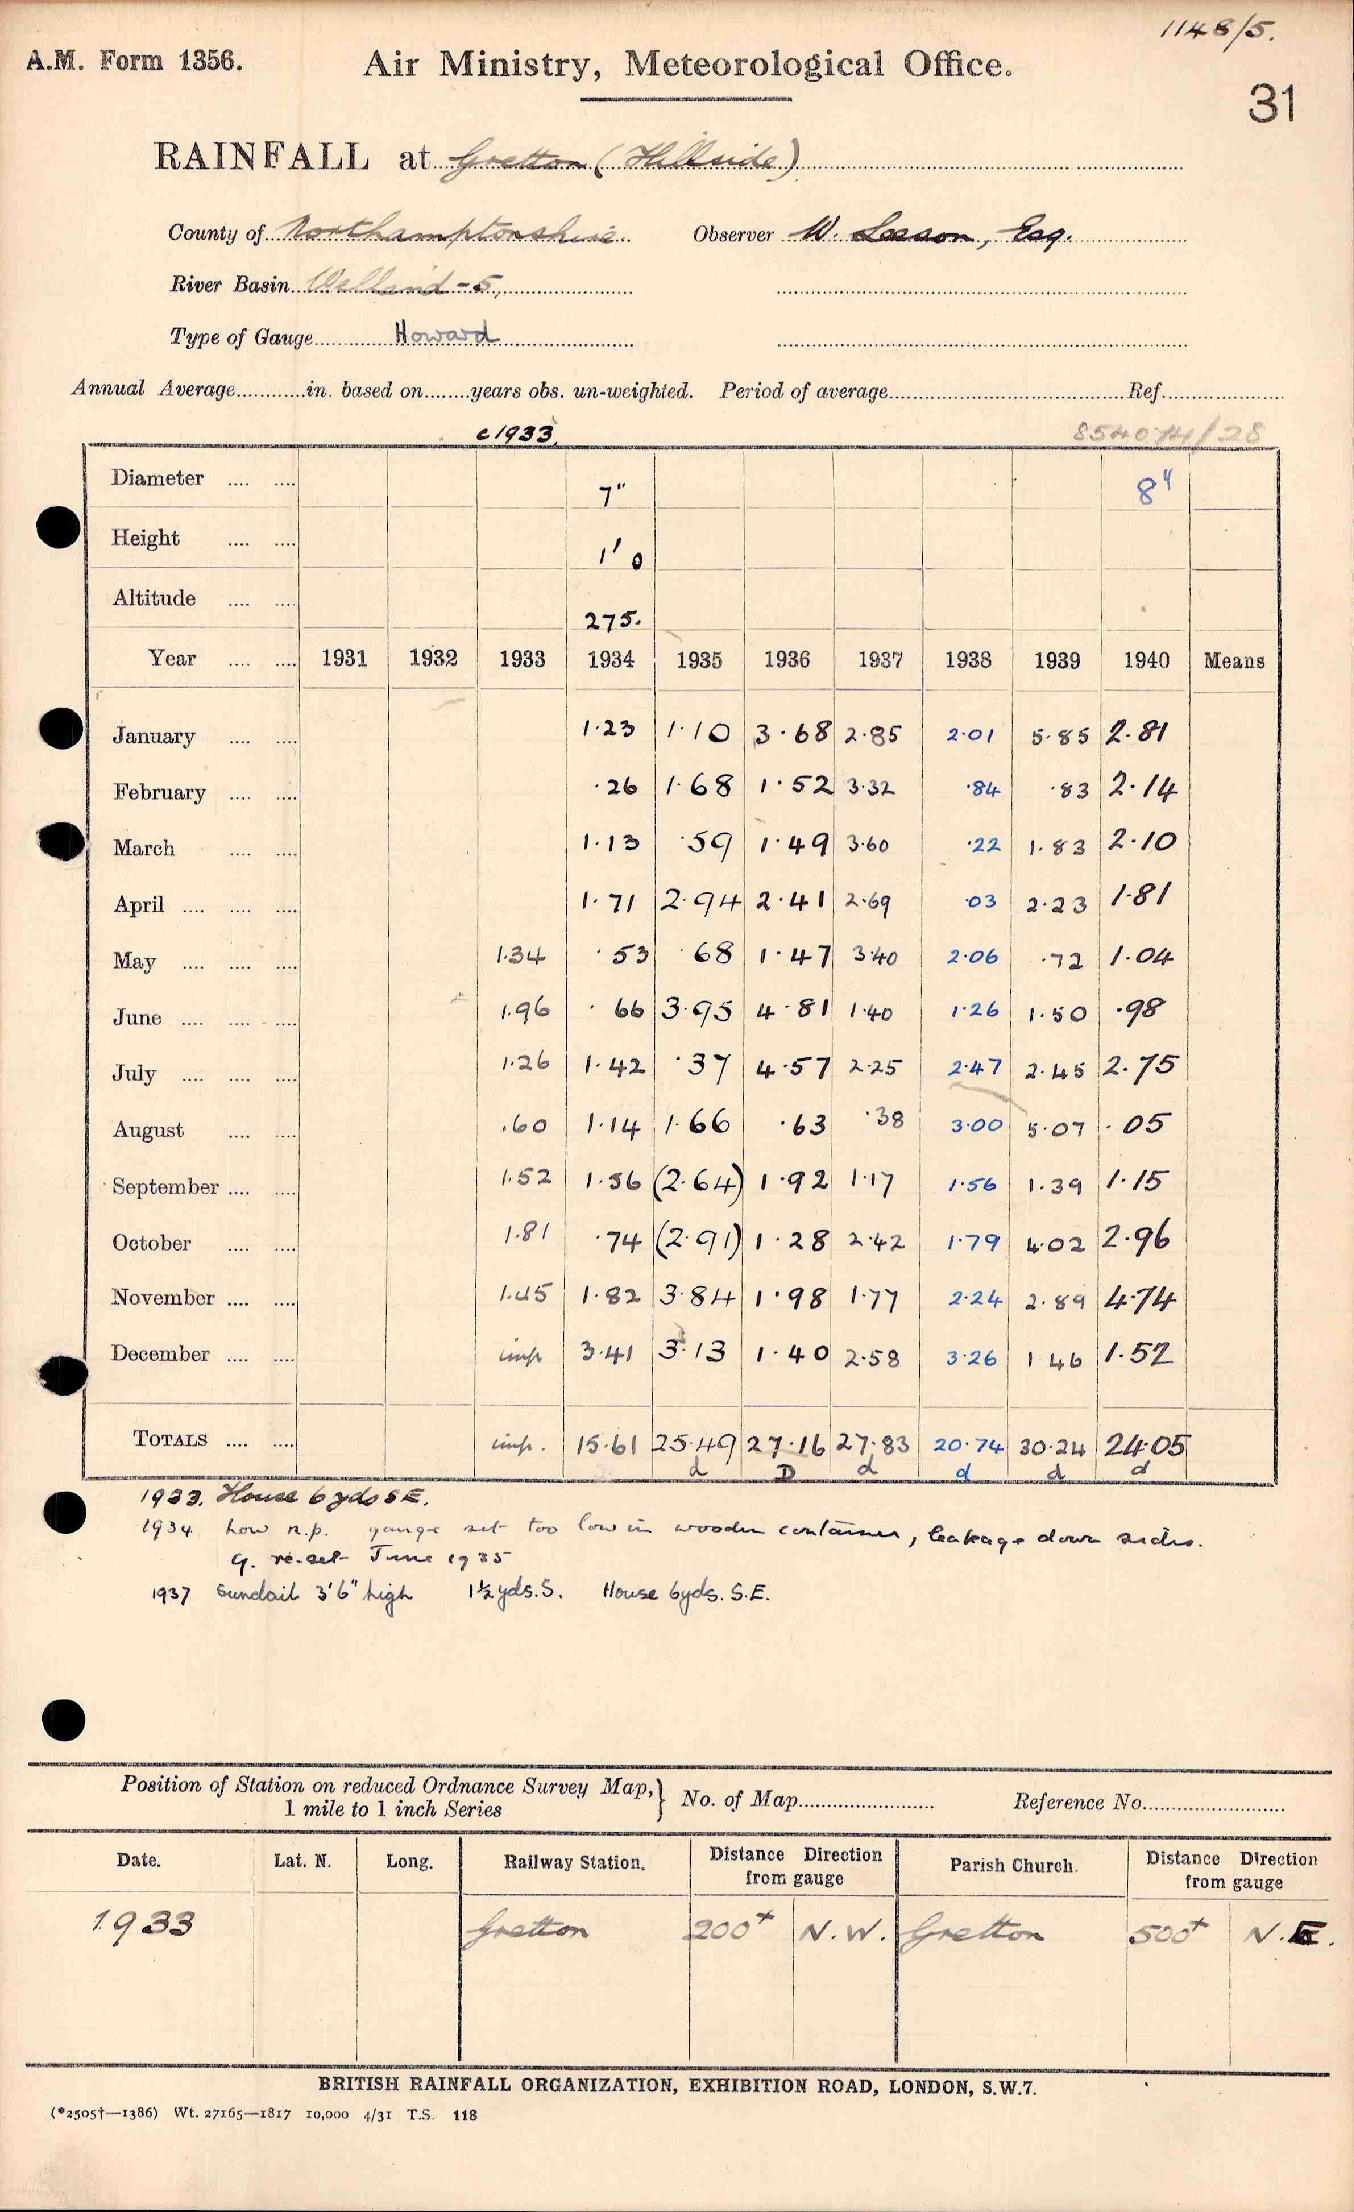 1148/5.
A.M. Form 1356.
Air Ministry, Meteorological Office.
31
RAINFALL at Gretton (Hillside)
County of Northamptonshire Observer W. Leeson, Esq.
River Basin Welland - 5.
Type of Gauge Howard
Annual Average............in. based on........years obs. un-weighted. Period of average.................... Ref....................
c1933. 854074/28
Diameter .... .... 7" 8"
Height .... .... 1' 0
Altitude .... .... 275.
Year .... .... 1931 1932 1933 1934 1935 1936 1937 1938 1939 1940 Means
January .... .... 1.23 1.10 3.68 2.85 2.01 5.85 2.81
February .... .... .26 1.68 1.52 3.32 .84 .83 2.14
March .... .... 1.13 .59 1.49 3.60 .22 1.83 2.10
April .... .... .... 1.71 2.94 2.41 2.69 .03 2.23 1.81
May .... .... .... 1.34 .53 .68 1.47 3.40 2.06 .72 1.04
June .... .... .... 1.96 .66 3.95 4.81 1.40 1.26 1.50 .98
July .... .... .... 1.26 1.42 .37 4.57 2.25 2.47 2.45 2.75
August .... .... .60 1.14 1.66 .63 .38 3.00 5.07 .05
September .... .... 1.52 1.56 (2.64) 1.92 1.17 1.56 1.39 1.15
October .... .... 1.81 .74 (2.91) 1.28 2.42 1.79 4.02 2.96
November .... .... 1.45 1.82 3.84 1.98 1.77 2.24 2.89 4.74
December .... .... imp 3.41 3.13 1.40 2.58 3.26 1 46 1.52
TOTALS .... .... imp. 15.61 25.49 27.16 27.83 20.74 30.24 24.05
d D d d d d
1933. House 6 yds S E.
1934 Low n.p. gauge set too low in wooden container, leakage down sides.
g. re-set June 1935
1937 Sundail 3'6" high 1½ yds. S. House 6yds. S.E.
Position of Station on reduced Ordnance Survey Map, 1 mile to 1 inch Series } No. of Map........................ Reference No.........................
Date. Lat. N. Long. Railway Station. Distance from gauge Direction Parish Church. Distance from gauge Direction
1933 Gretton 200+ N.W. Gretton 500+ N.E.
BRITISH RAINFALL ORGANIZATION, EXHIBITION ROAD, LONDON, S.W.7.
(*2505†—1386) Wt. 27165—1817 10,000 4/31 T.S. 118